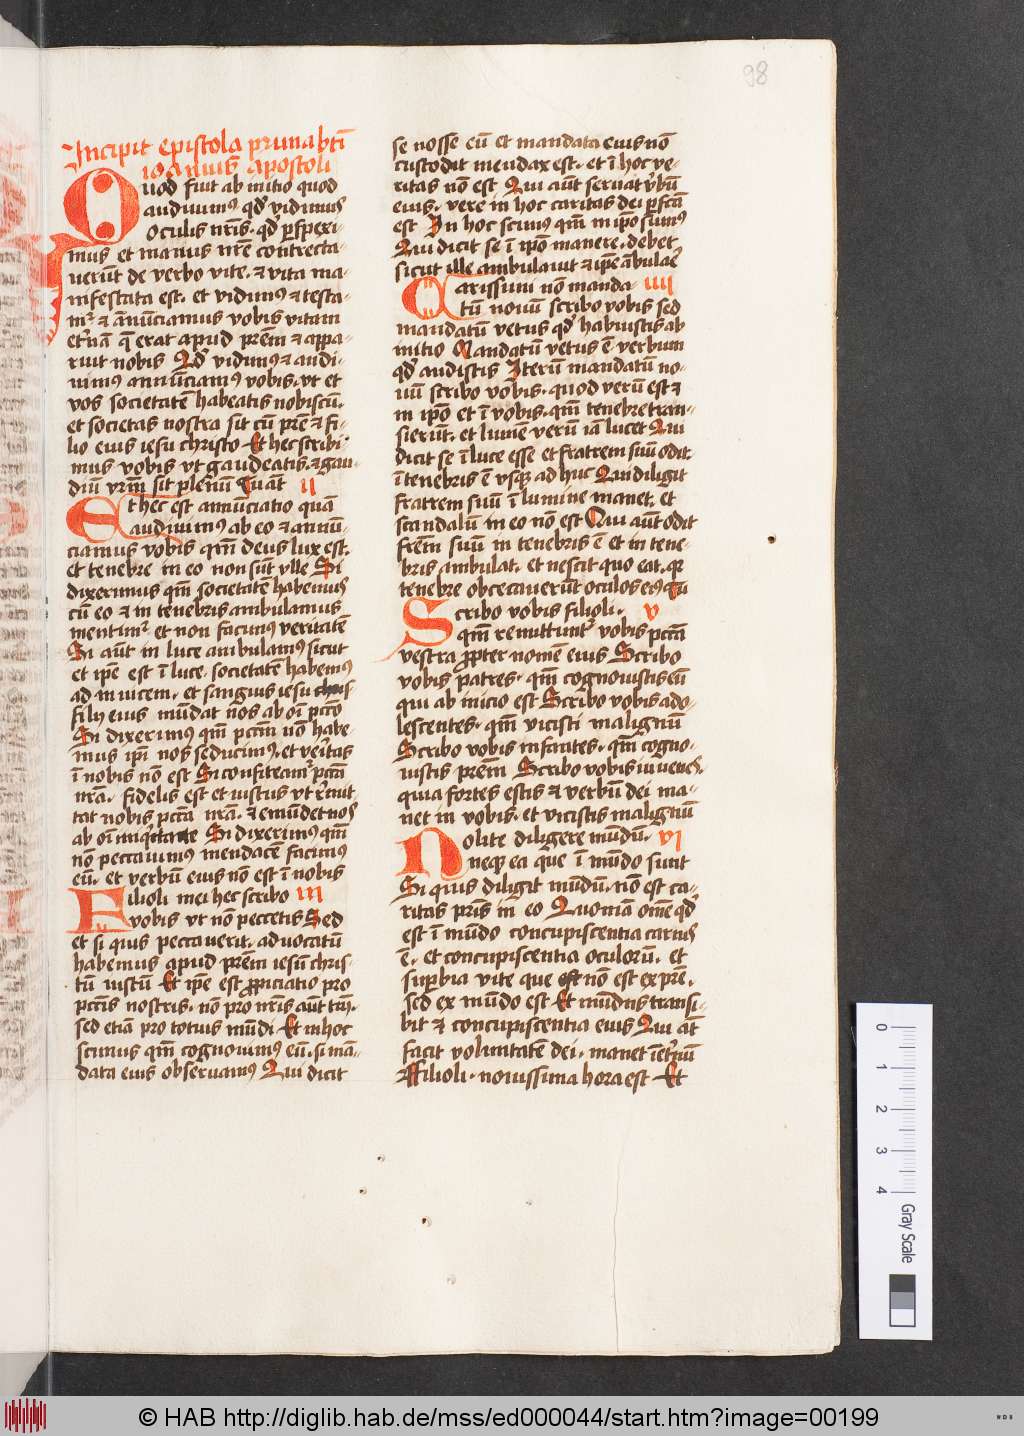 98
Incipit epistola prima bti
ioannis apostoli
Quod fuit ab initio quod
audiuimꝰ qđ vidimus
oculis nr̄is. qđ ꝑspexi-
mus et manus nr̄e contrecta-
uerūt de verbo vite. ⁊ vita ma-
nifestata est. et vidimus ⁊ testa-
mr̄ ⁊ ānūciamus vobis vitam
etˀnā q̄ erat apud prēm ⁊ appa-
ruit nobis Qđ vidimus ⁊ audi-
uimꝰ annūciamꝰ vobis. vt et
vos societatē habeatis nobiscū.
et societas nostra sit cū prē ⁊ fi-
lio eius iesu christo Et hec scribi-
mus vobis vt gaudeatis. ⁊ gau-
diū vrm̄ sit plenū Quāt II
Et hec est annūciatio quā
audiuimus ab eo ⁊ annū-
ciamus vobis qm̄ deus lux est.
et tenebre in eo non sūt vlle Si
dixerimus qm̄ societatē habemus
cū eo ⁊ in tenebris ambulamus
mentimr̄ et non facimꝰ veritatē
Si aūt in luce ambulamꝰ sicut
et ip̄e est ī luce. societatē habemꝰ
ad inuicem. et sangius iesu chris
filij eius mūdat nos ab oī pctō
Si dixerimus qm̄ pctm̄ nō habe-
mus ip̄i nos seducimꝰ. et veritas
ī nobis nō est Si confiteamr̄ pctā
nrā. fidelis est et iustus vt remit
tat nobis pctā nrā. ⁊ emūdet nos
ab oī iniqͥtate Si dixerimꝰ qm̄
nō peccauimꝰ mendacē facimꝰ
eū. et verbū eius nō est ī nobis
Filioli mei hec scribo III
vobis vt nō peccetis Sed
et si quis peccauerit. aduocatū
habemus apud prēm iesū chris-
tū iustū Et ip̄e est ꝓpiciatio pro
pctīs nostris. nō pro nrīs aūt tm̄.
sed etiā pro totius mūdi Et in hoc
scimus qm̄ cognouimꝰ eū. si mā-
data eius obseruamꝰ Qui dicit
se nosse eū et mandata eius nō
custodit mendax est. et ī hoc ve-
ritas nō est Qui aūt seruat v̓bū
eius. vere in hoc caritas dei ꝑfctā
est In hoc scimus qm̄ in ip̄o sumꝰ
Qui dicit se ī ip̄o manere. debet
sicut ille ambulauit ⁊ ip̄e ābulae
Carissimi nō manda- IIII
tū nouū scribo vobis sed
mandatū vetus qđ habuistis ab
initio Mandatū vetus ē verbum
qđ audistis Iterū mandatū no-
uū scribo vobis. quod verū est ⁊
in ip̄o et ī vobis. qm̄ tenebre tran-
sierūt. et lumē verū iā lucet Qui
dicit se ī luce esse et fratrem suū odit.
ī tenebris ē vsqꝫ ad huc Qui diligit
fratrem suū ī lumine manet. et
scandalū in eo nō est Qui aūt odit
frēm suū in tenebris ē et in tene-
bris ambulat. et nescit quo eat. qꝛ
tenebre obcecauerūt oculos eiꝰ Qu
Scribo vobis filioli. V
qm̄ remittuntr̄ vobis pctā
vestra ꝓpter nomē eius Scribo
vobis patres. qm̄ cognouistis eū
qui ab inicio est Scribo vobis ado-
lescentes. qm̄ vicisti malignū
Scribo vobis infātes. qm̄ cogno-
uistis prēm Scribo vobis iuuenes.
quia fortes estis ⁊ verbū dei ma-
net in vobis. et vicistis malignū
Nolite diligere mūdū. VI
neqꝫ ea que ī mūdo sunt
Si quis diligit mūdū. nō est ca-
ritas pris̄ in eo Quoniā om̄e qđ
est ī mūdo concupiscentia carnis
ē. et concupiscentia oculorū. et
suꝑbia vite que est nō est ex prē.
sed ex mūdo est Et mūdus transi-
bit ⁊ concupiscentia eius Qui āt
facit voluntatē dei. manet ī etˀnū
Filioli. nouissima hora est Et
0 1 2 3 4
Gray Scale
© HAB http://diglib.hab.de/mss/ed000044/start.htm?image=00199